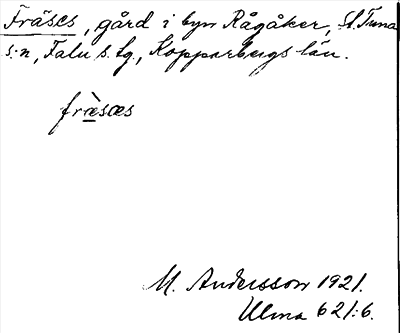 Fräses, gård i byn Rågåker, St. Tuna
s:n, Falu s. lg., Kopparbergs län.
fræ̀sæs
M. Andersson 1921.
Ulma 621:6.